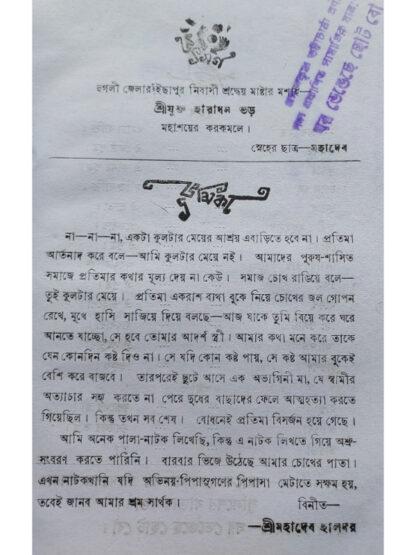 উৎসর্গ
হুগলী জেলার ইছাপুর নিবাসী শ্রদ্ধেয় মাষ্টার মশাই—
শ্রীযুক্ত হারাধন ভড়
মহাশয়ের করকমলে।
স্নেহের ছাত্র—মহাদেব
ভূমিকা
না—না—না, একটা কুলটার মেয়ের আশ্রয় এবাড়িতে হবে না। প্রতিমা
আর্তনাদ করে বলে—আমি কুলটার মেয়ে নই। আমাদের পুরুষ-শাসিত
সমাজে প্রতিমার কথার মূল্য দেয় না কেউ। সমাজ চোখ রাঙিয়ে বলে—
তুই কুলটার মেয়ে। প্রতিমা একরাশ ব্যথা বুকে নিয়ে চোখের জল গোপন
রেখে, মুখে হাসি সাজিয়ে দিয়ে বলছে—আজ যাকে তুমি বিয়ে করে ঘরে
আনতে যাচ্ছো, সে হবে তোমার আদর্শ স্ত্রী। আমার কথা মনে করে তাকে
যেন কোনদিন কষ্ট দিও না। সে যদি কোন কষ্ট পায়, সে কষ্ট আমার বুকেই
বেশি করে বাজবে। তারপরেই ছুটে আসে এক অভাগিনী মা, যে স্বামীর
অত্যাচার সহ্য করতে না পেরে দুধের বাছাদের ফেলে আত্মহত্যা করতে
গিয়েছিল। কিন্তু তখন সব শেষ। বোধনেই প্রতিমা বিসর্জন হয়ে গেছে।
আমি অনেক পালা-নাটক লিখেছি, কিন্তু এ নাটক লিখতে গিয়ে অশ্রু-
সংবরণ করতে পারিনি। বারবার ভিজে উঠেছে আমার চোখের পাতা।
এখন নাটকখানি যদি অভিনয়-পিপাসুগণের পিপাসা মেটাতে সক্ষম হয়,
তবেই জানব আমার শ্রম সার্থক। বিনীত—
—শ্রীমহাদেব হালদার
ঘর ভেঙেছে ছোট বৌ